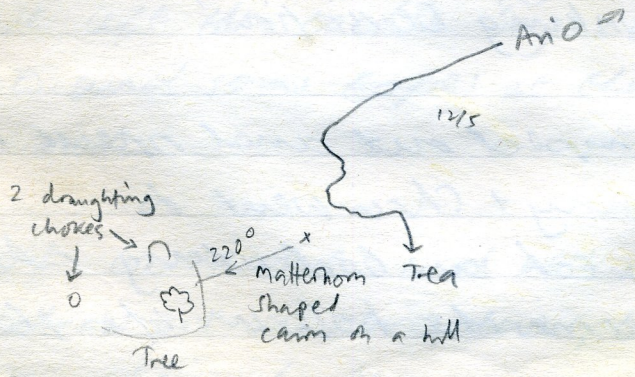 Ario →
12/5
2 draughting
chokes
220° x
Matterhorn
shaped
cairn on a hill
Trea
Tree